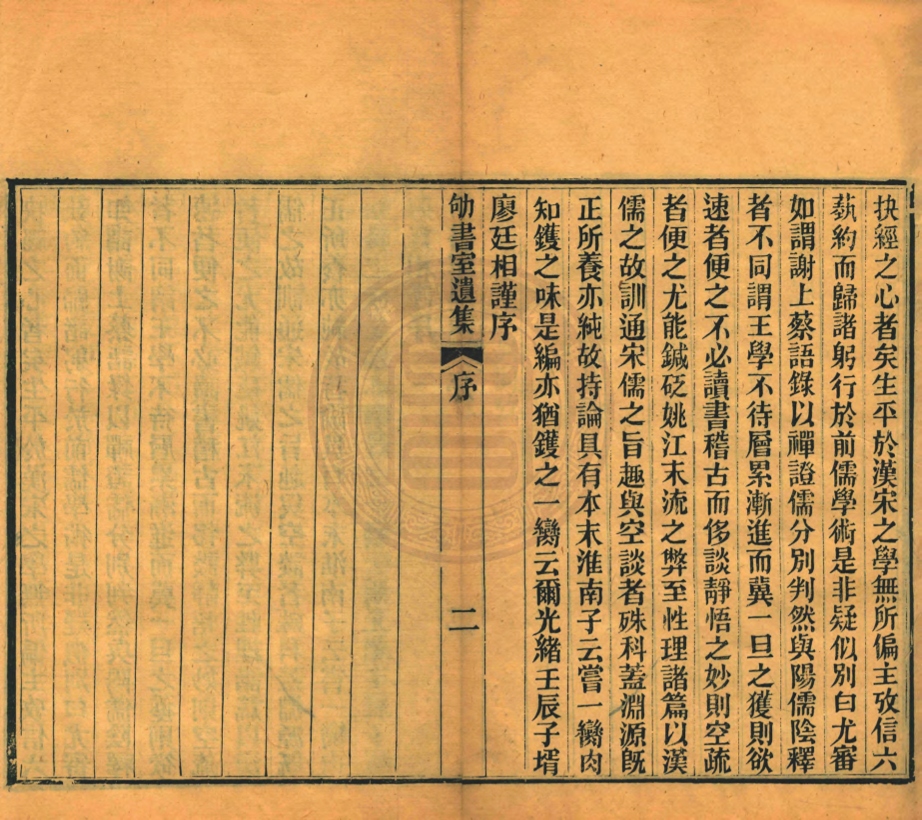 抉經之心者矣生平於漢宋之學無所偏主攷信六
蓺約而歸諸躬行於前儒學術是非疑似別白尤審
如謂謝上蔡語錄以禪證儒分別判然與陽儒陰釋
者不同謂王學不待層累漸進而冀一旦之獲則欲
速者便之不必讀書稽古而侈談靜悟之妙則空疏
者便之尤能鍼砭姚江末流之弊至性理諸篇以漢
儒之故訓通宋儒之旨趣與空談者殊科蓋淵源旣
正所養亦純故持論具有本末淮南子云嘗一臠肉
知鑊之味是編亦猶鑊之一臠云爾光緒壬辰子壻
廖廷相謹序
劬書室遺集 序 二